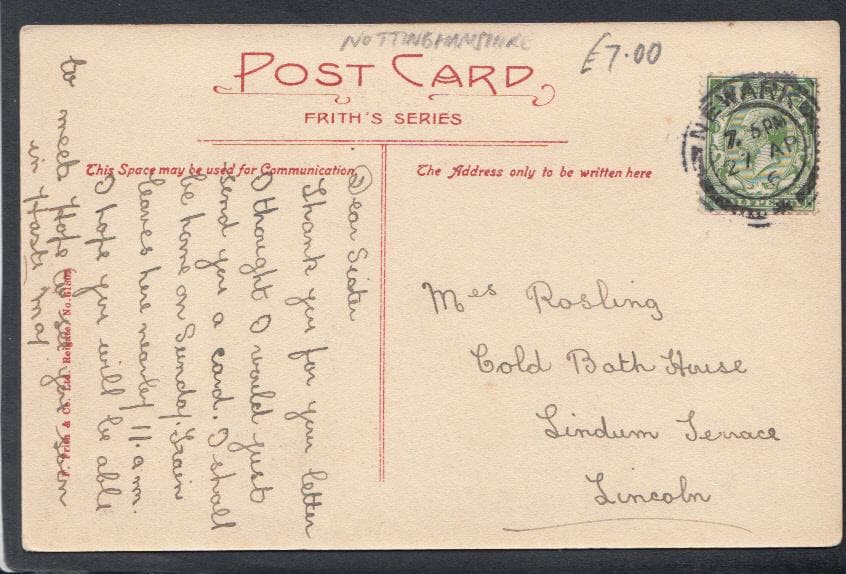 NOTTINGHAMSHIRE
£7.00
POST CARD
FRITH'S SERIES
This Space may be used for Communication.
The Address only to be written here
NEWARK
7. 5 PM
27 AP
Dear Sister
Thank you for your letter
I thought I would just
send you a card. I shall
be home on Sunday. Train
leaves here nearly 11. a.m.
I hope you will be able
to meet. Hope to see you soon
in Haste
Mrs Rosling
Cold Bath House
Lindum Terrace
Lincoln
F. Frith & Co. Ltd. Reigate. No.